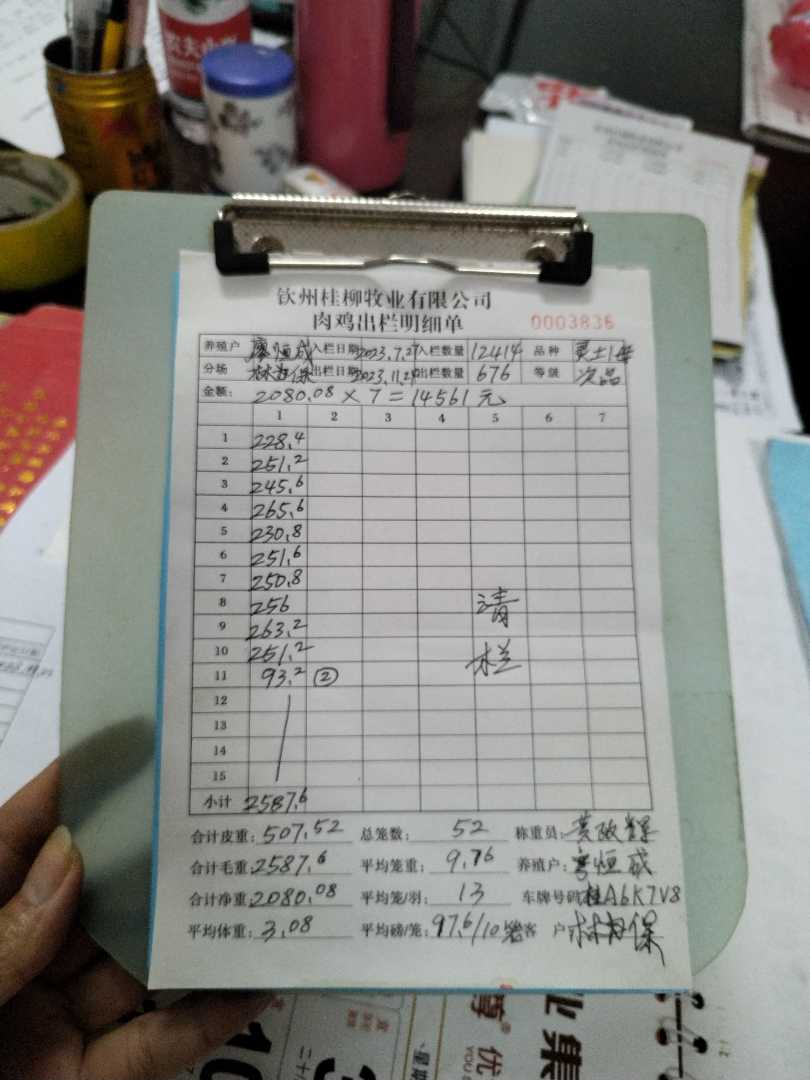 农夫山
钦州桂柳牧业有限公司
肉鸡出栏明细单 0003836
养殖户 廖恒成 入栏日期 2023.7.27 入栏数量 12414 品种 灵土1号
分场 出栏日期 2023.11.29 出栏数量 676 等级 次品
金额: 2080.08 × 7 = 14561元
1 2 3 4 5 6 7
1 228.4
2 251.2
3 245.6
4 265.6
5 230.8
6 251.6
7 250.8
8 256 清
9 263.2
10 251.2 栏
11 93.2 ②
12
13
14
15
小计 2587.6
合计皮重: 507.52 总笼数: 52 称重员:
合计毛重: 2587.6 平均笼重: 9.76 养殖户: 廖恒成
合计净重: 2080.08 平均笼/羽: 13 车牌号码: 桂A6K7V8
平均体重: 3.08 平均磅/笼: 97.6/10笼 客户
集
优
YOU
10